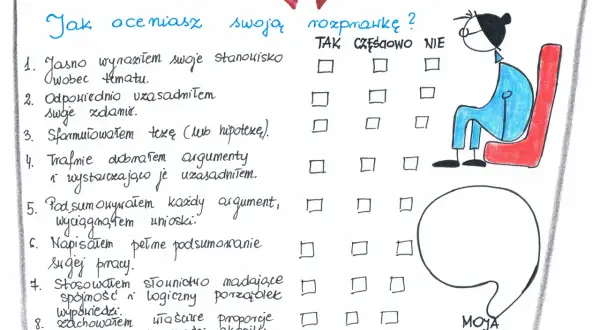 Jak oceniasz swoją rozprawkę?
TAK CZĘŚCIOWO NIE
1. Jasno wyraziłem swoje stanowisko
wobec tematu.
2. Odpowiednio uzasadniłem
swoje zdanie.
3. Sformułowałem tezę (lub hipotezę).
4. Trafnie dobrałem argumenty
i wystarczająco je uzasadniłem.
5. Podsumowywałem każdy argument,
wyciągnąłem wnioski.
6. Napisałem pełne podsumowanie
swojej pracy.
7. Stosowałem słownictwo nadające
spójność i logiczny porządek
wypowiedzi.
8. Zachowałem właściwe proporcje
MOJA